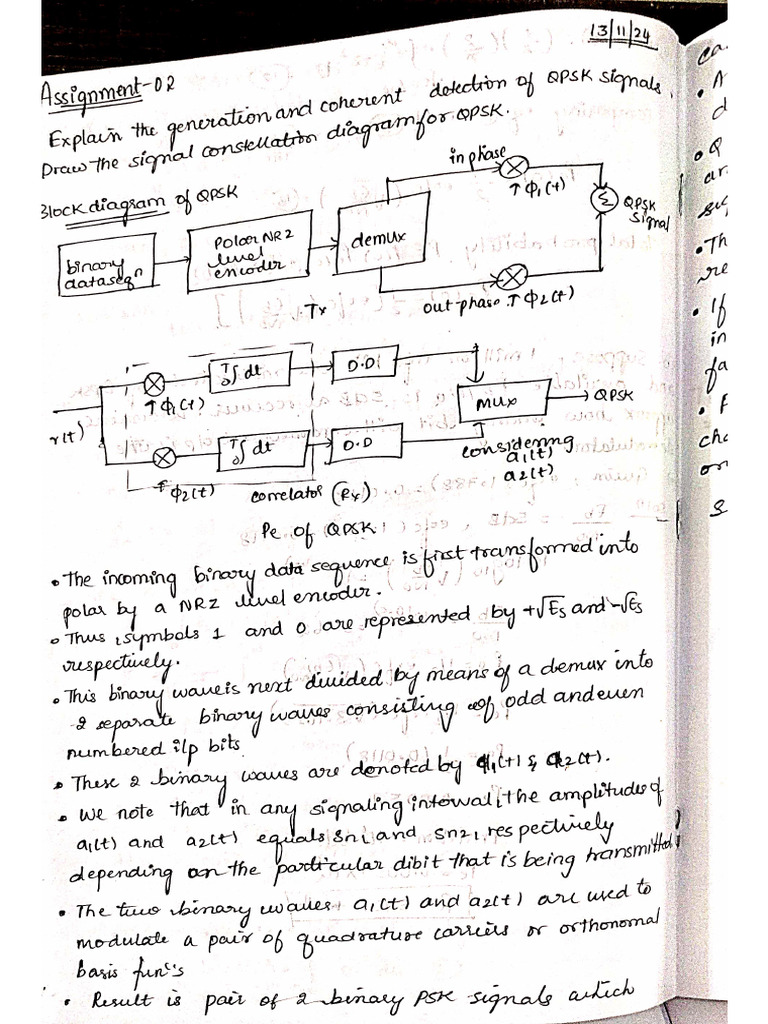 13/11/24
Assignment-02
Explain the generation and coherent detection of QPSK signals.
Draw the signal constellation diagram for QPSK.
Block diagram of QPSK
in phase
↑ϕ1(t)
binary
data seqn
Polar NRZ
level
encoder
demux
Σ
QPSK
signal
Tx
out-phase ↑ϕ2(t)
r(t)
↑ϕ1(t)
T∫0 dt
D.D
MUX
→ QPSK
↑ϕ2(t)
T∫0 dt
D.D
considering
a1(t)
a2(t)
correlator (Rx)
Pe of QPSK
• The incoming binary data sequence is first transformed into
polar by a NRZ level encoder.
• Thus, symbols 1 and 0 are represented by +√Es and -√Es
respectively.
• This binary wave is next divided by means of a demux into
2 separate binary waves consisting of odd and even
numbered i/p bits
• These 2 binary waves are denoted by a1(t) & a2(t).
• We note that in any signaling interval, the amplitudes of
a1(t) and a2(t) equals Sn1 and Sn2, respectively
depending on the particular dibit that is being transmitted
• The two binary waves a1(t) and a2(t) are used to
modulate a pair of quadrature carriers or orthonomal
basis funs
• Result is pair of 2 binary PSK signals which
ca
• A
d
• Q
ar
• Th
re
• If
in
fa
• F
cha
on
S